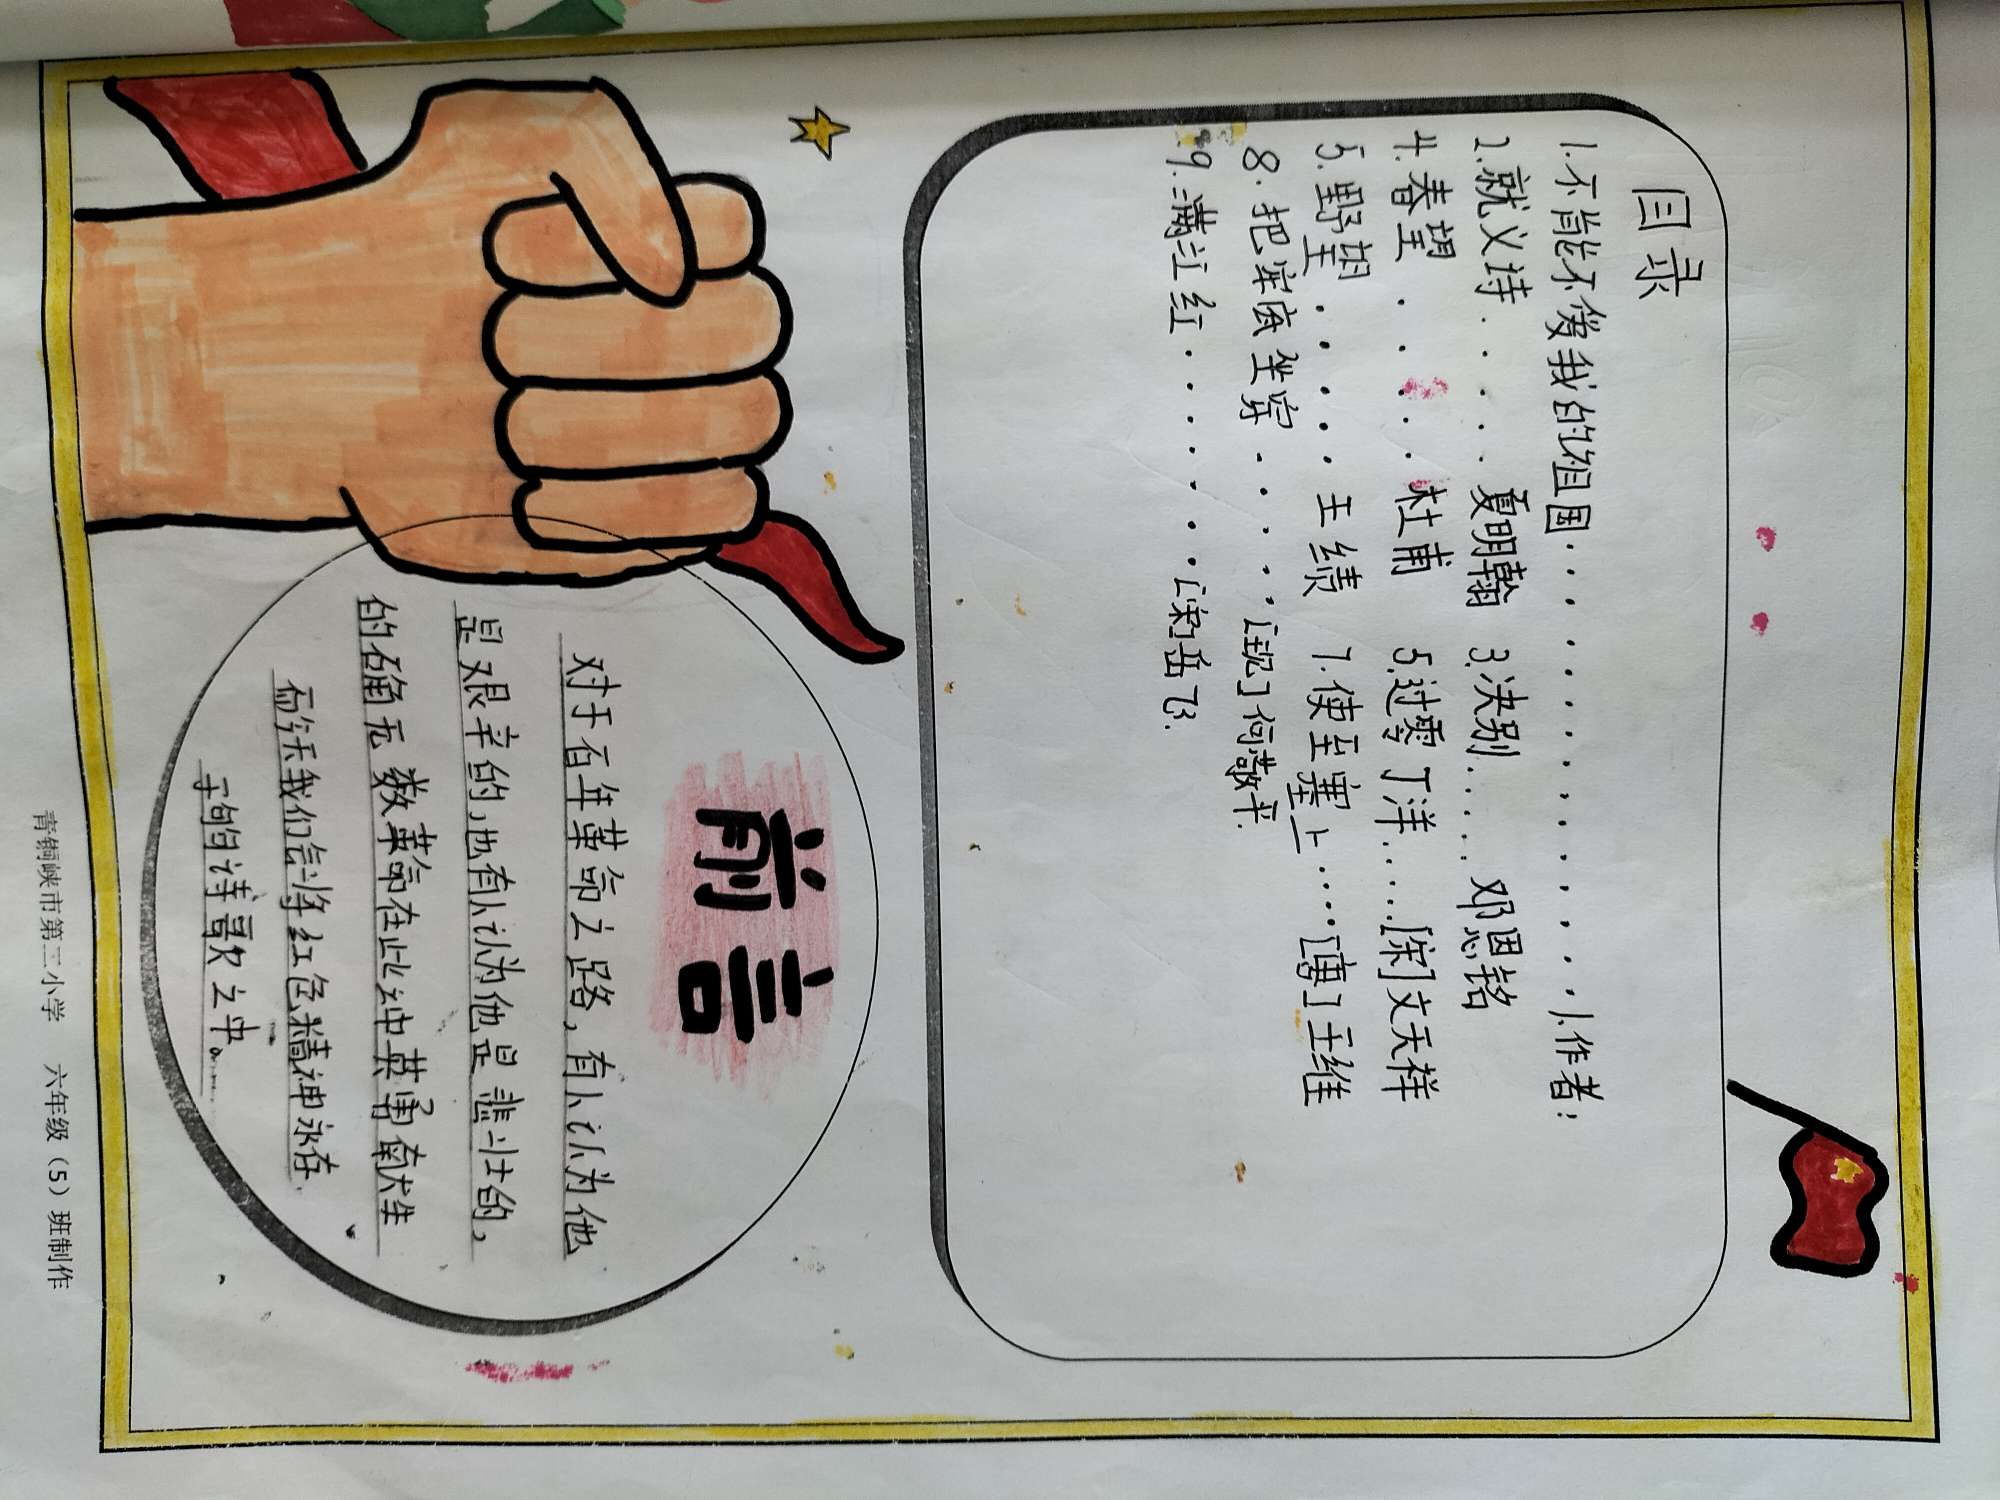 目录
1.不肯能不傻我的祖国...............小作者:
2.就义持.....夏明翰 3.决别.....邓恩铭
4.春望.....杜甫 5.过零丁洋.....[宋]文天样
5.野望......王绩 7.使至塞上....[唐]王维
8.把牢底坐穿.....[现]何敬平.
9.满江红........[宋]岳飞.
前言
对于百年革命之路,有人认为他
是艰辛的,也有人认为他是悲壮的,
的确无数革命在此中英勇牺牲
而今天我们会将红色精神永存.
于句句诗歌之中。
青铜峡市第三小学 六年级(5)班制作